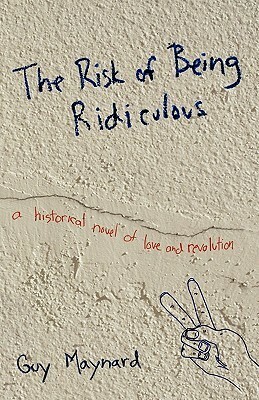 The Risk of Being
Ridiculous
a historical novel of love and revolution
Guy Maynard